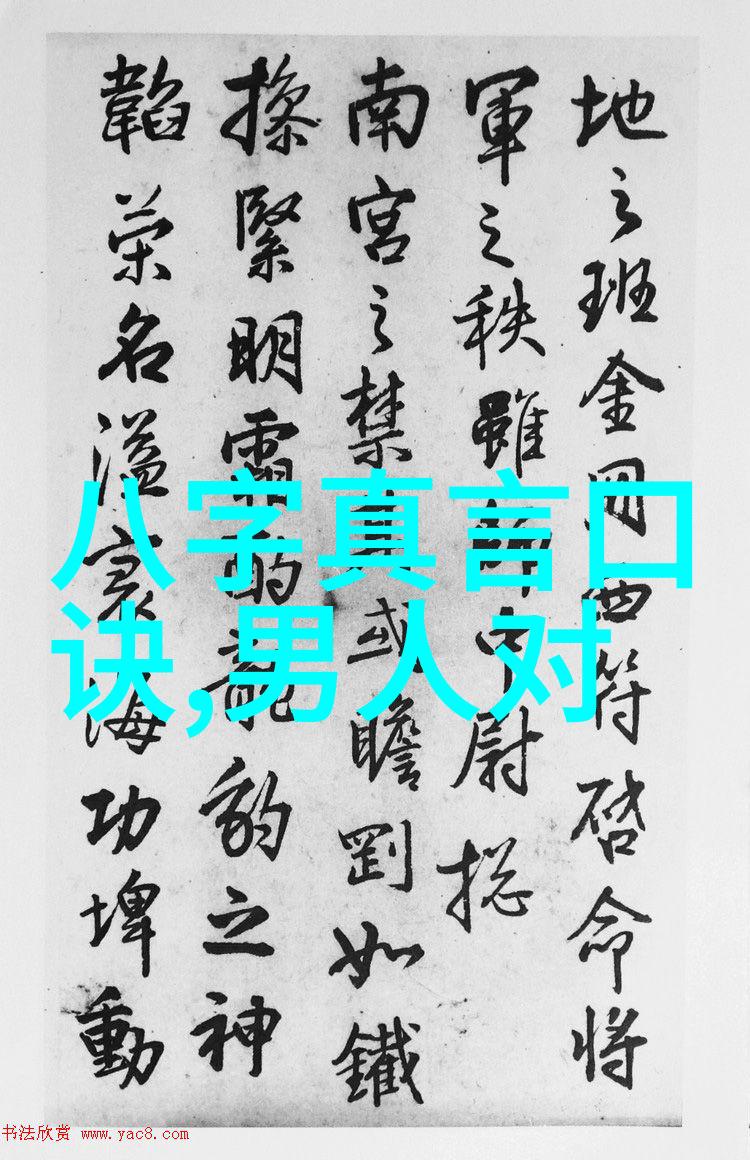 地之班金西符啓命将
軍之秩雖中尉捴
南宫之禁或瞻剛如鐵
操緊明霜豹之神
韜荣名溢寰海功埤動
八字真言口
诀,男人对
书法欣赏 www.yac8.com